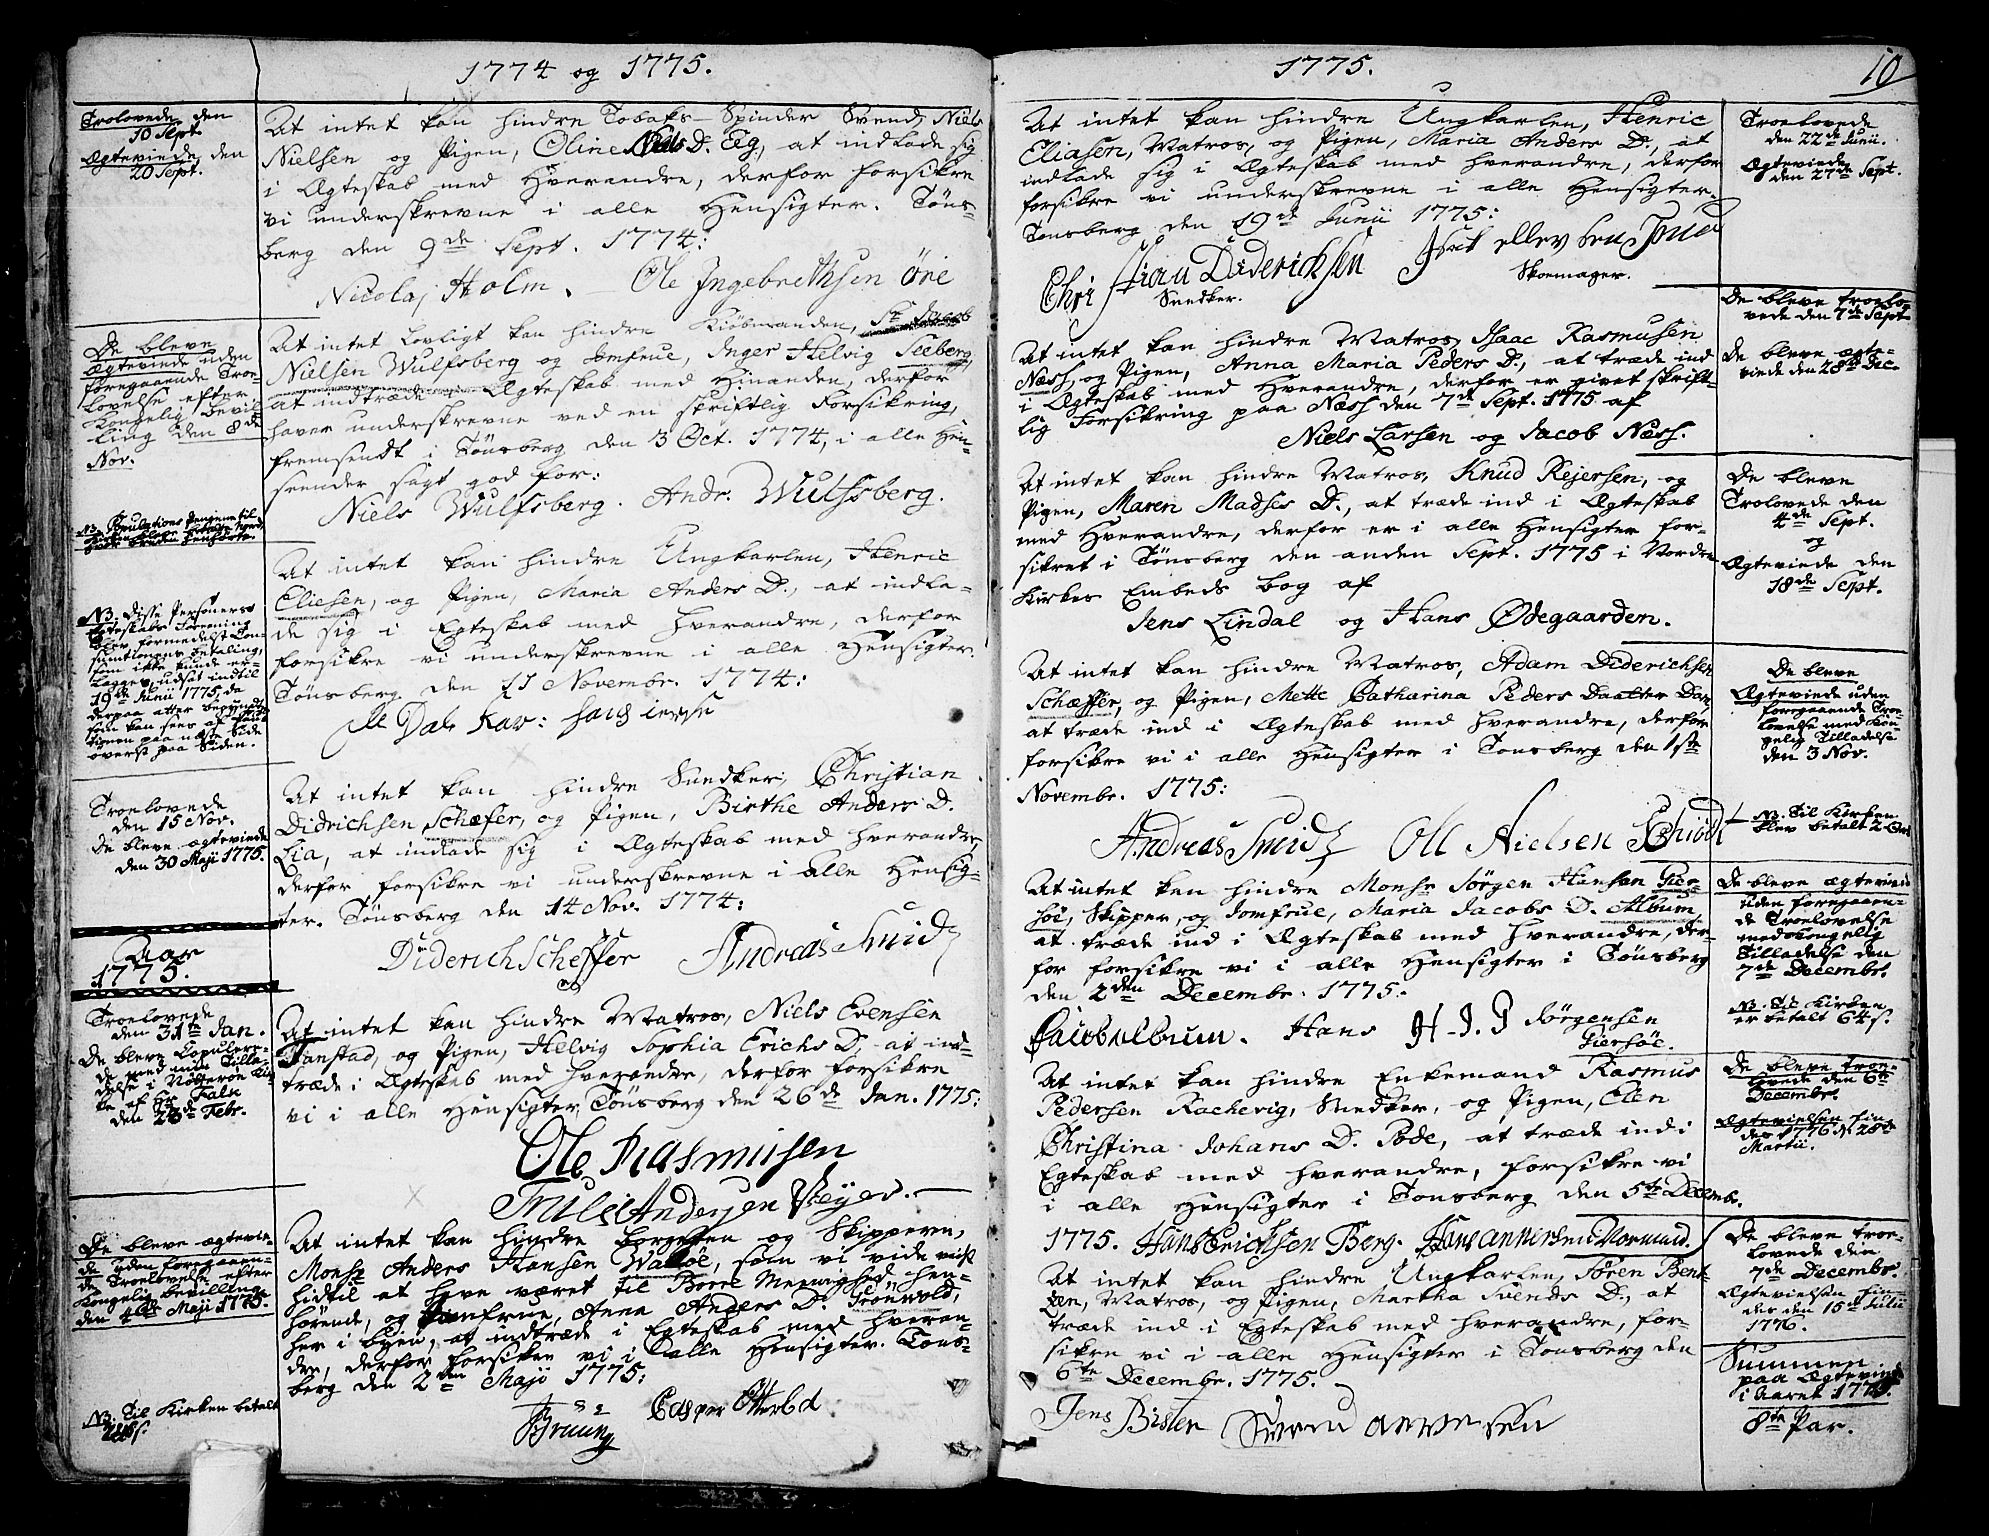 1774 og 1775.
Trolovede den
10 Sept.
Ægteviede den
20 Sept.
At intet kan hindre Tobaks-Spinder Svend, Niels
Nielsen og Pigen, Oline Niels D. Eeg, at indlade sig
i Ægteskab med hverandre, derfor forsikre
vi underskrevne i alle Hensigter. Töns-
berg den 9de Sept. 1774:
Nicolaj Holm. Ole Ingebrethsen Öre
De bleve
Ægteviede uden
foregaaende Troe-
lovelse efter
Kongelig Bevil-
ling den 8de
Nov.
NB. Copulations Pengene til
At intet Lovligt kan hindre Kiöbmanden, Sr. Jacob
Nielsen Wulfsberg og Jomfrue, Inger Helvig Seeberg,
at indtræde i Ægteskab med Hinanden, derfor
haver underskrevne ved en skriftlig Forsikring,
fremsendt i Tönsberg den 3 Oct. 1774, i alle Hen-
seender sagt god for:
Niels Wulfsberg. Andr. Wulfsberg.
NB. Disse Personers
Egteskabs Forening
blev formedelst Con-
sumtionens betaling,
som ikke kunde er-
lægges, udsat indtil
19de Junii 1775, da
derpaa atter begyndt
som kan sees af Cau-
tionen paa næste Side
överst paa Siden.
At intet kan hindre Ungkarlen, Henric
Eliesen, og Pigen, Maria Anders D., at indla-
de sig i Egteskab med hverandre, derfor
forsikre vi underskrevne i alle Hensigter.
Tönsberg den 11 Novembr. 1774:
Troelovede
den 15 Nov.
De bleve ægteviede
den 30 Maji 1775.
At intet kan hindre Snedker, Christian
Didrichsen Schæfer, og Pigen, Birthe Anders D.
Lia, at indlade sig i Ægteskab med hverandre,
derfor forsikre vi underskrevne i alle Hensig-
ter. Tönsberg den 14 Nov. 1774:
Diderich Scheffer Andreas Smid
Aar
1775.
Troelovede
den 31te Jan.
De bleve Copulere-
de med min Tilla-
delse i Nötterön Kir-
ke af Hr. Falk
den 23de Febr.
At intet kan hindre Matros, Niels Evensen
Fanstad, og Pigen, Helvig Sophia Erichs D., at ind-
træde i Ægteskab med hverandre, derfor forsikre
vi i alle Hensigter, Tönsberg den 26de Jan. 1775:
Ole Rasmusen
Truls Andersen
De bleve ægtevie-
de uden foregaaen-
de Troelovelse efter
Kongelig bevilling
den 4de Maji 1775.
At intet kan hindre Borgeren og Skipperen,
Monsr Anders Hansen Wallöe, som vi vide
hidtil at have været til Borre Menighed hen-
hörende, og Jomfrue, Anna Anders D. Grönvold,
her i Byen, at indtræde i Egteskab med hveran-
dre, derfor forsikre vi i alle Hensigter. Töns-
berg den 2den Maji 1775:
Bruun Casper Otterbech
NB. Til Kirken betalt
1775.
10
At intet kan hindre Ungkarlen, Henric
Eliasen, Matros, og Pigen, Maria Anders D., at
indlade sig i Ægteskab med hverandre, derfor
forsikre vi underskrevne i alle Hensigter.
Tönsberg den 19de Junii 1775:
Christian Diderichsen
Snedker. Skoemager.
Troelovede
den 22de Junii.
Ægteviede
den 27de Sept.
At intet kan hindre Matros, Isaac Rasmusen
Næss, og Pigen, Anna Maria Peders D., at træde ind
i Ægteskab med Hverandre, derfor er givet skrift-
lig Forsikring paa Næss den 7de Sept. 1775 af
Niels Larsen og Jacob Næss.
De bleve troelo-
vede den 7de Sept.
De bleve ægte-
viede den 28de Dec.
At intet kan hindre Matros, Knud Rejersen, og
Pigen, Maren Madses D., at træde ind i Ægteskab
med Hverandre, derfor er i alle Hensigter for-
sikret i Tönsberg den anden Sept. 1775 i Norden
Kirkes Embeds bog af
Jens Lindal og Hans Ødegaarden.
De bleve
Trolovede den
4de Sept.
og
Ægteviede den
18de Sept.
At intet kan hindre Matros, Adam Diderichsen
Schæffer, og Pigen, Mette Catharina Peders Daatter Dan,
at træde ind i Ægteskab med hverandre, derfor
forsikre vi i alle Hensigter i Tönsberg den 1ste
Novembr. 1775:
Andreas Smid Oll Nielsen
De bleve
Ægteviede uden
foregaaende Troe-
lovelse med Kon-
gelig Tilladelse
den 3 Nov.
NB. Til Kirken
blev betalt 2
At intet kan hindre Monsr Jörgen Hansen Gier-
söe, Skipper, og Jomfrue, Maria Jacobs D. Album
at træde ind i Ægteskab med hverandre, der-
for forsikre vi i alle Hensigter i Tönsberg
den 2den Decembr. 1775:
Jacob Album. Hans H.J.P Jörgensen
Giersöe.
De bleve ægteviede
uden foregaaen-
de Troelovelse
med Kongelig
Tilladelse den
7de Decembr.
NB. Til Kirken
er betalt 64 s.
At intet kan hindre Enkemand Rasmus
Pedersen Rachevig, Snedker, og Pigen, Elen
Christina Johans D. Pode, at træde ind i
Egteskab med hverandre, forsikre vi
i alle Hensigter i Tönsberg den 5te Decembr.
1775. Hans Erichsen Berg.
De bleve troe-
lovede den 6te
Decembr.
Ægtevielsen hin-
des 1776 d. 28de
Martii.
At intet kan hindre Ungkarlen, Sören Bent-
zen, Matros, og Pigen, Martha Svends D., at
træde ind i Egteskab med hverandre, for-
sikre vi i alle Hensigter i Tönsberg den
6te Decembr. 1775.
Jens Bislen
De bleve troe-
lovede den
7de Decembr.
Ægtevielsen hin-
des den 15de Julii
1776.
Summen
paa Ægteviede
i Aaret 1775.
8te Par.